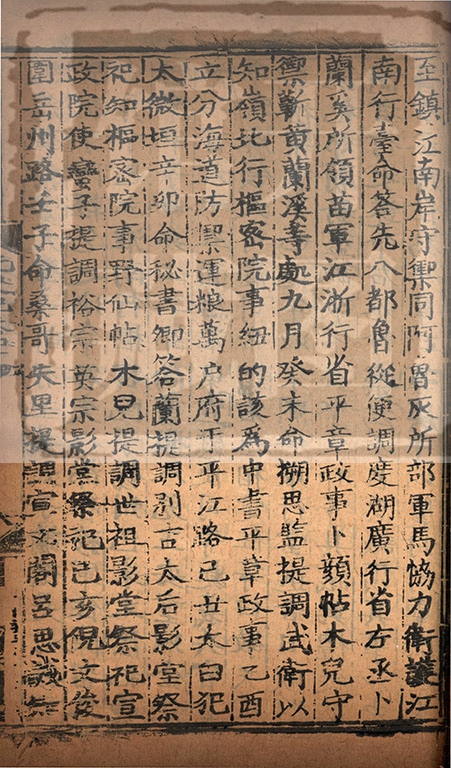 至鎮江南岸守禦同阿魯灰所部軍馬恊力衛護江
南行臺命荅失八都魯從便調度湖廣行省左丞卜
蘭奚所領苗軍江浙行省平章政事卜顔帖木兒守
禦蘄黄蘭溪等處九月癸未命搠思監提調武衛以
知嶺北行樞密院事紐的該為中書平章政事乙酉
立分海道防禦運粮萬户府于平江路己丑太白犯
太微垣辛卯命秘書卿荅蘭提調別吉太后影堂祭
祀知樞密院事野仙帖木兒提調世祖影堂祭祀宣
政院使蠻子提調裕宗英宗影堂祭祀己亥倪文俊
圍岳州路壬子命桑哥失里提調宣文閣吕思誠